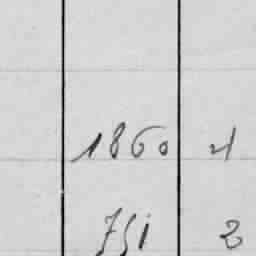 1860 4
751 2